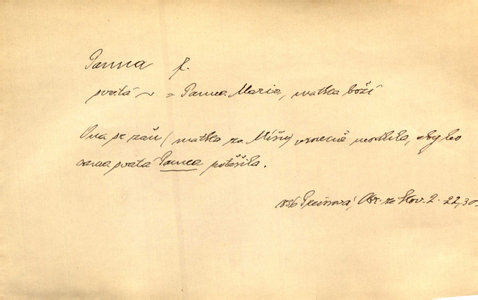 Panna f.
svatá ~ = Panna Maria, matka boží
Ona se zaň / matka za Míšu/ vroucně modlila, aby ho
sama svatá Panna potěšila.
Preissová, Obr. ze Slov. 2. 22,30